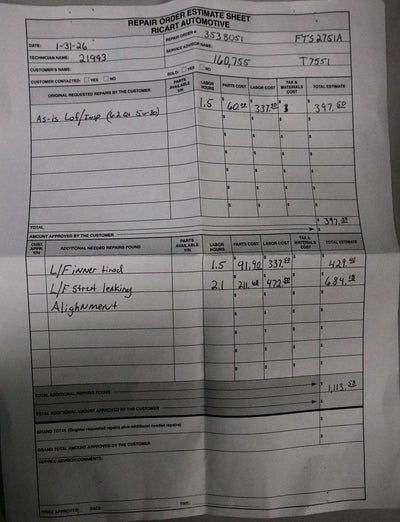 REPAIR ORDER ESTIMATE SHEET
RICART AUTOMOTIVE
DATE: 1-31-26 REPAIR ORDER #: 3538051 FTS2751A
TECHNICIAN NAME: 21993 SERVICE ADVISOR NAME: 160,755 T7551
CUSTOMER'S NAME:
CUSTOMER CONTACTED: YES NO SOLD: YES NO
ORIGINAL REQUESTED REPAIRS BY THE CUSTOMER PARTS AVAILABLE Y/N LABOR HOURS PARTS COST LABOR COST TAX & MATERIALS COST TOTAL ESTIMATE
As-is Lof/Insp 1.5 337. $ 397.
TOTAL $ 397.
AMOUNT APPROVED BY THE CUSTOMER $
CUST. APPR. Y/N ADDITIONAL NEEDED REPAIRS FOUND PARTS AVAILABLE Y/N LABOR HOURS PARTS COST LABOR COST TAX & MATERIALS COST TOTAL ESTIMATE
L/F inner tierod 1.5 91.90 337. 429.
L/F strut leaking 2.1 211. 472. 684.
Alighnment
TOTAL ADDITIONAL REPAIRS FOUND $ 1,113.
TOTAL ADDITIONAL AMOUNT APPROVED BY THE CUSTOMER $
GRAND TOTAL (Original requested repairs plus additional needed repairs) $
GRAND TOTAL AMOUNT APPROVED BY THE CUSTOMER $
SERVICE ADVISOR COMMENTS:
WORK APPROVED: DATE: TIME: